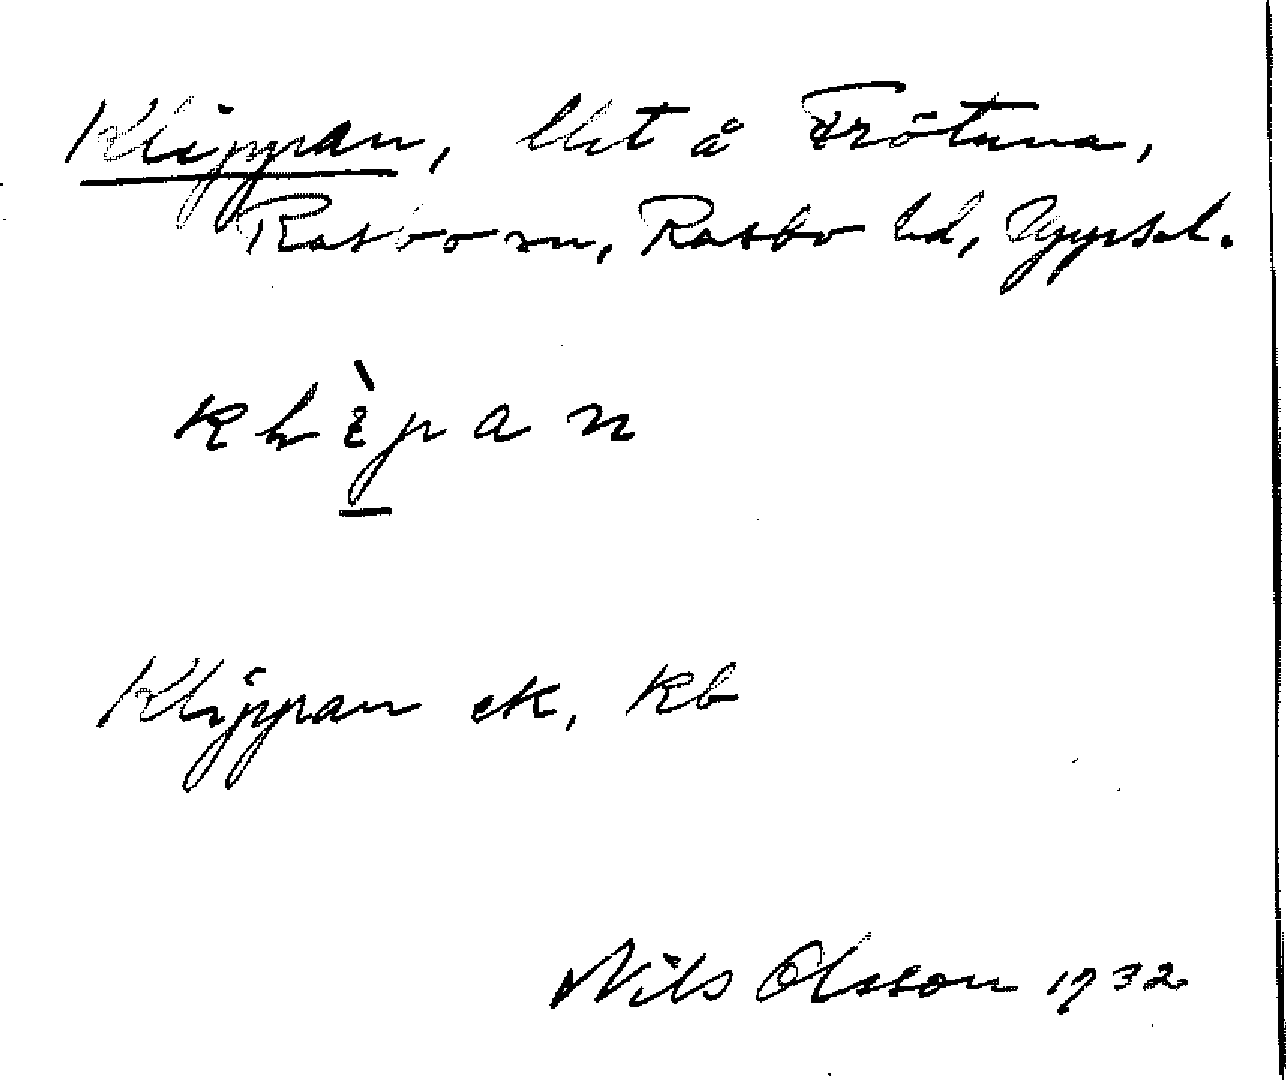 Klippan, lht å Frötuna,
Rasbo sn, Rasbo hd, Uppsal.
Klippan ek, kb
Nils Olsson 1932